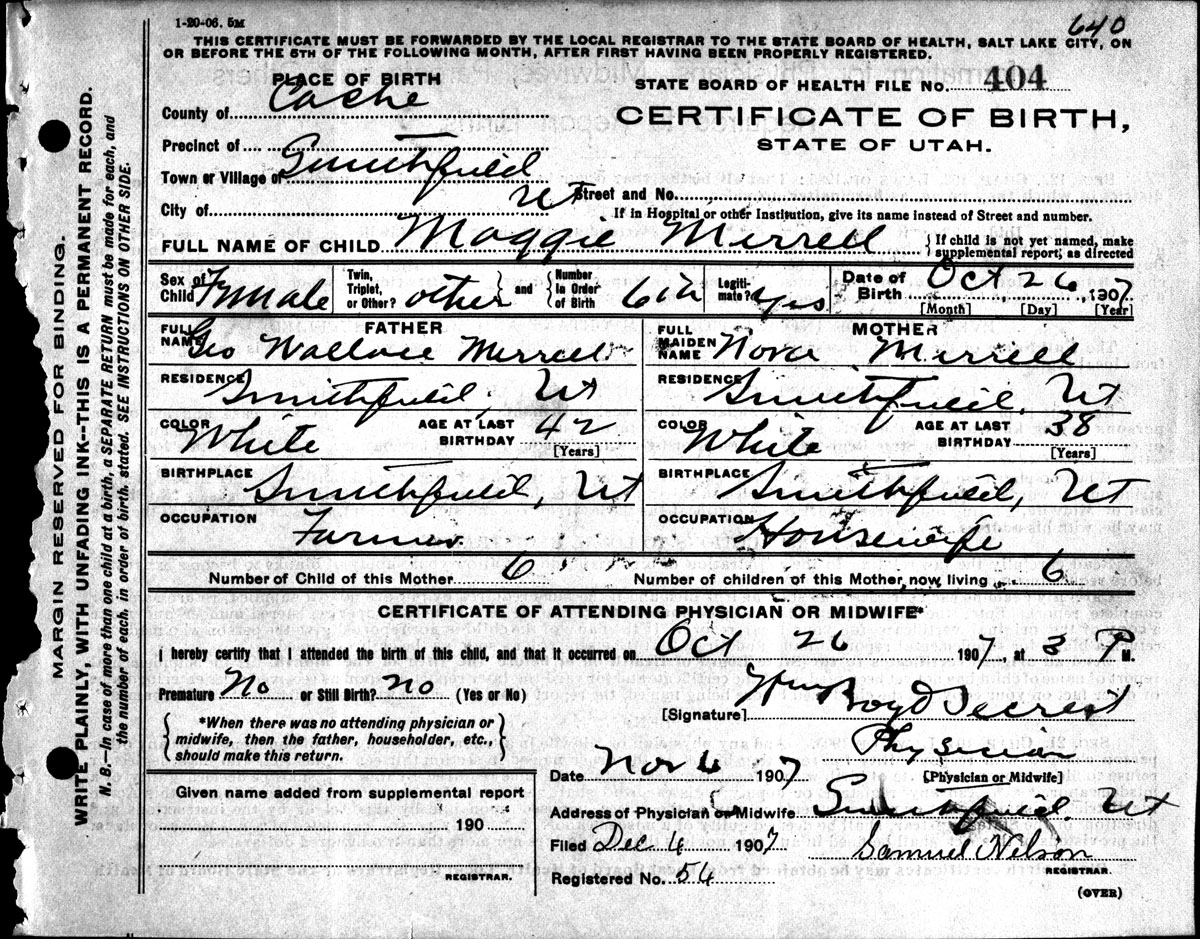 1-20-06. 5M
640
THIS CERTIFICATE MUST BE FORWARDED BY THE LOCAL REGISTRAR TO THE STATE BOARD OF HEALTH, SALT LAKE CITY, ON
OR BEFORE THE 5TH OF THE FOLLOWING MONTH, AFTER FIRST HAVING BEEN PROPERLY REGISTERED.
PLACE OF BIRTH
STATE BOARD OF HEALTH FILE No. 404
County of Cache
CERTIFICATE OF BIRTH,
STATE OF UTAH.
Precinct of
Town or Village of Smithfield
City of Ut Street and No.
If in Hospital or other Institution, give its name instead of Street and number.
FULL NAME OF CHILD Maggie Merrell { If child is not yet named, make supplemental report, as directed
Sex of Child Female Twin, Triplet, or Other? other and Number In Order of Birth 6th Legitimate? Yes Date of Birth Oct 26, 1907
[Month] [Day] [Year]
FATHER MOTHER
FULL NAME Geo Wallace Merrell FULL MAIDEN NAME Nora Merrell
RESIDENCE Smithfield, Ut RESIDENCE Smithfield, Ut
COLOR White AGE AT LAST BIRTHDAY 42 [Years] COLOR White AGE AT LAST BIRTHDAY 38 [Years]
BIRTHPLACE Smithfield, Ut BIRTHPLACE Smithfield, Ut
OCCUPATION Farmer OCCUPATION Housewife
Number of Child of this Mother 6 Number of children of this Mother, now living 6
CERTIFICATE OF ATTENDING PHYSICIAN OR MIDWIFE*
I hereby certify that I attended the birth of this child, and that it occurred on Oct 26 1907, at 3 P M.
Premature No or Still Birth? no (Yes or No)
[Signature] Wm Boyd Secrest
*When there was no attending physician or
midwife, then the father, householder, etc.,
should make this return.
Physician
[Physician or Midwife]
Date Nov 6 1907
Given name added from supplemental report
190
REGISTRAR.
Address of Physician or Midwife Smithfield. Ut
Filed Dec 4 1907 Samuel Nelson
REGISTRAR.
Registered No. 54
(OVER)
MARGIN RESERVED FOR BINDING.
WRITE PLAINLY, WITH UNFADING INK--THIS IS A PERMANENT RECORD.
N. B.—In case of more than one child at a birth, a SEPARATE RETURN must be made for each, and
the number of each, in order of birth, stated. SEE INSTRUCTIONS ON OTHER SIDE.